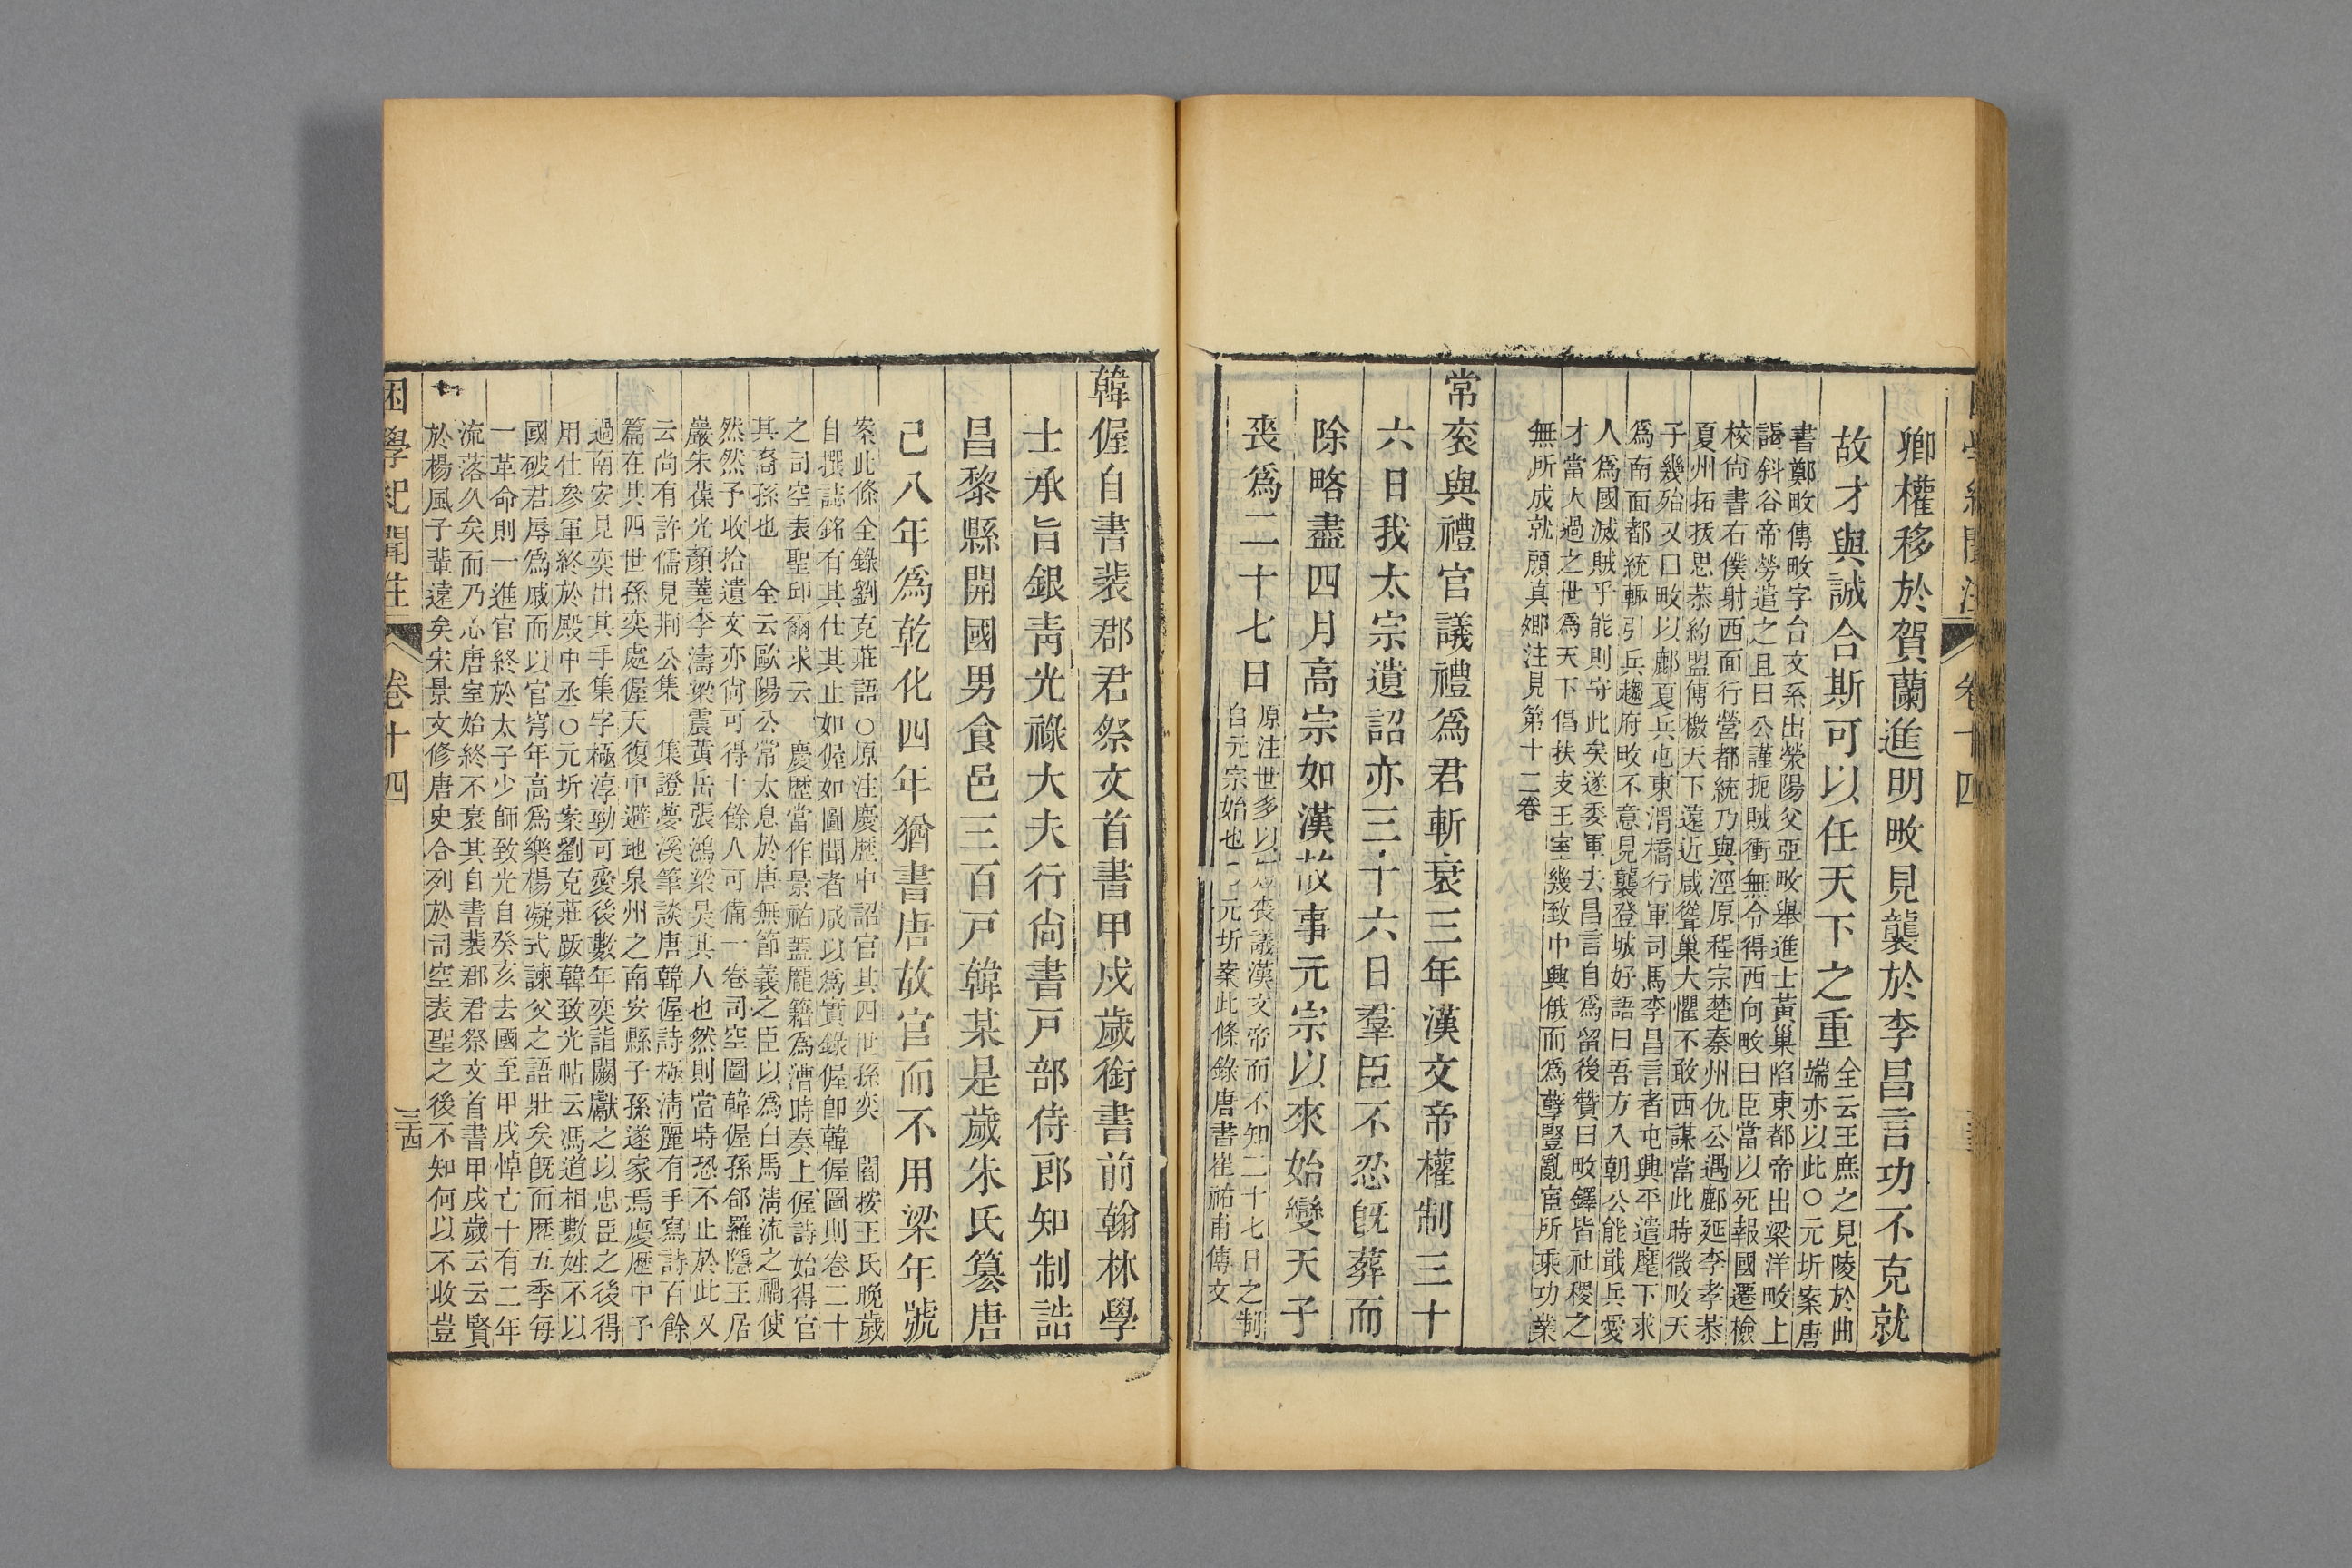 卷十四
卿權移於賀蘭進明畋見襲於李昌言功不克就
故才與誠合斯可以任天下之重
全云王庶之見陵於曲
端亦以此○元圻案唐
書鄭畋傳畋字台文系出滎陽父亞畋舉進士黃巢陷東都帝出梁洋畋上
謁斜谷帝勞遣之且曰公謹扼賊衝無令得西向畋曰臣當以死報國遷檢
校尚書右僕射西面行營都統乃與涇原程宗楚秦州仇公遇鄜延李孝恭
夏州拓拔思恭約盟傳檄天下遠近咸聳巢大懼不敢西謀當此時微畋天
子幾殆又曰畋以鄜夏兵屯東渭橋行軍司馬李昌言者屯興平遣麾下求
爲南面都統輒引兵趨府畋不意見襲登城好語曰吾方入朝公能戢兵愛
人爲國滅賊乎能則守此矣遂委軍去昌言自爲留後贊曰畋鐸皆社稷之
才當大過之世爲天下倡扶支王室幾致中興俄而爲孽豎亂宦所乘功業
無所成就顏真卿注見第十二卷
常衮與禮官議禮爲君斬衰三年漢文帝權制三十
六日我太宗遺詔亦三十六日羣臣不忍旣葬而
除略盡四月高宗如漢故事元宗以來始變天子
喪爲二十七日
原注世多以喪議漢文帝而不知二十七日之制
自元宗始也元圻案此條錄唐書崔祐甫傳文
韓偓自書裴郡君祭文首書甲戌歲銜書前翰林學
士承旨銀靑光祿大夫行尙書戸部侍郎知制誥
昌黎縣開國男食邑三百戸韓某是歲朱氏簒唐
己八年爲乾化四年猶書唐故官而不用梁年號
案此條全錄劉克莊語○原注慶歷中詔官其四世孫奕 閻按王氏晚歲
自撰誌銘有其仕其止如偓如圖聞者咸以爲實錄偓卽韓偓圖則卷二十
之司空表聖卬爾求云 慶歷當作景祐蓋龐籍爲漕時奏上偓詩始得官
其裔孫也 全云歐陽公常太息於唐無節義之臣以爲白馬淸流之禍使
然然予收拾遺文亦尙可得十餘人可備一卷司空圖韓偓孫郃羅隱王居
巖朱葆光顏蕘李濤梁震黃岳張鴻梁昊其人也然則當時恐不止於此又
云尙有許儒見荆公集 集證夢溪筆談唐韓偓詩極淸麗有手寫詩百餘
篇在其四世孫奕處偓天復中避地泉州之南安縣子孫遂家焉慶歷中予
過南安見奕出其手集字極淳勁可愛後數年奕詣闕獻之以忠臣之後得
用仕參軍終於殿中丞○元圻案劉克莊跋韓致光帖云馮道相數姓不以
國破君辱爲戚而以官穹年高爲樂楊凝式諫父之語壯矣旣而歷五季每
一革命則一進官終於太子少師致光自癸亥去國至甲戌悼亡十有二年
流落久矣而乃心唐室始終不衰其自書裴郡君祭文首書甲戌歲云云賢
於楊風子輩遠矣宋景文修唐史合列於司空表聖之後不知何以不收豈
困學紀聞注 卷十四 三十四